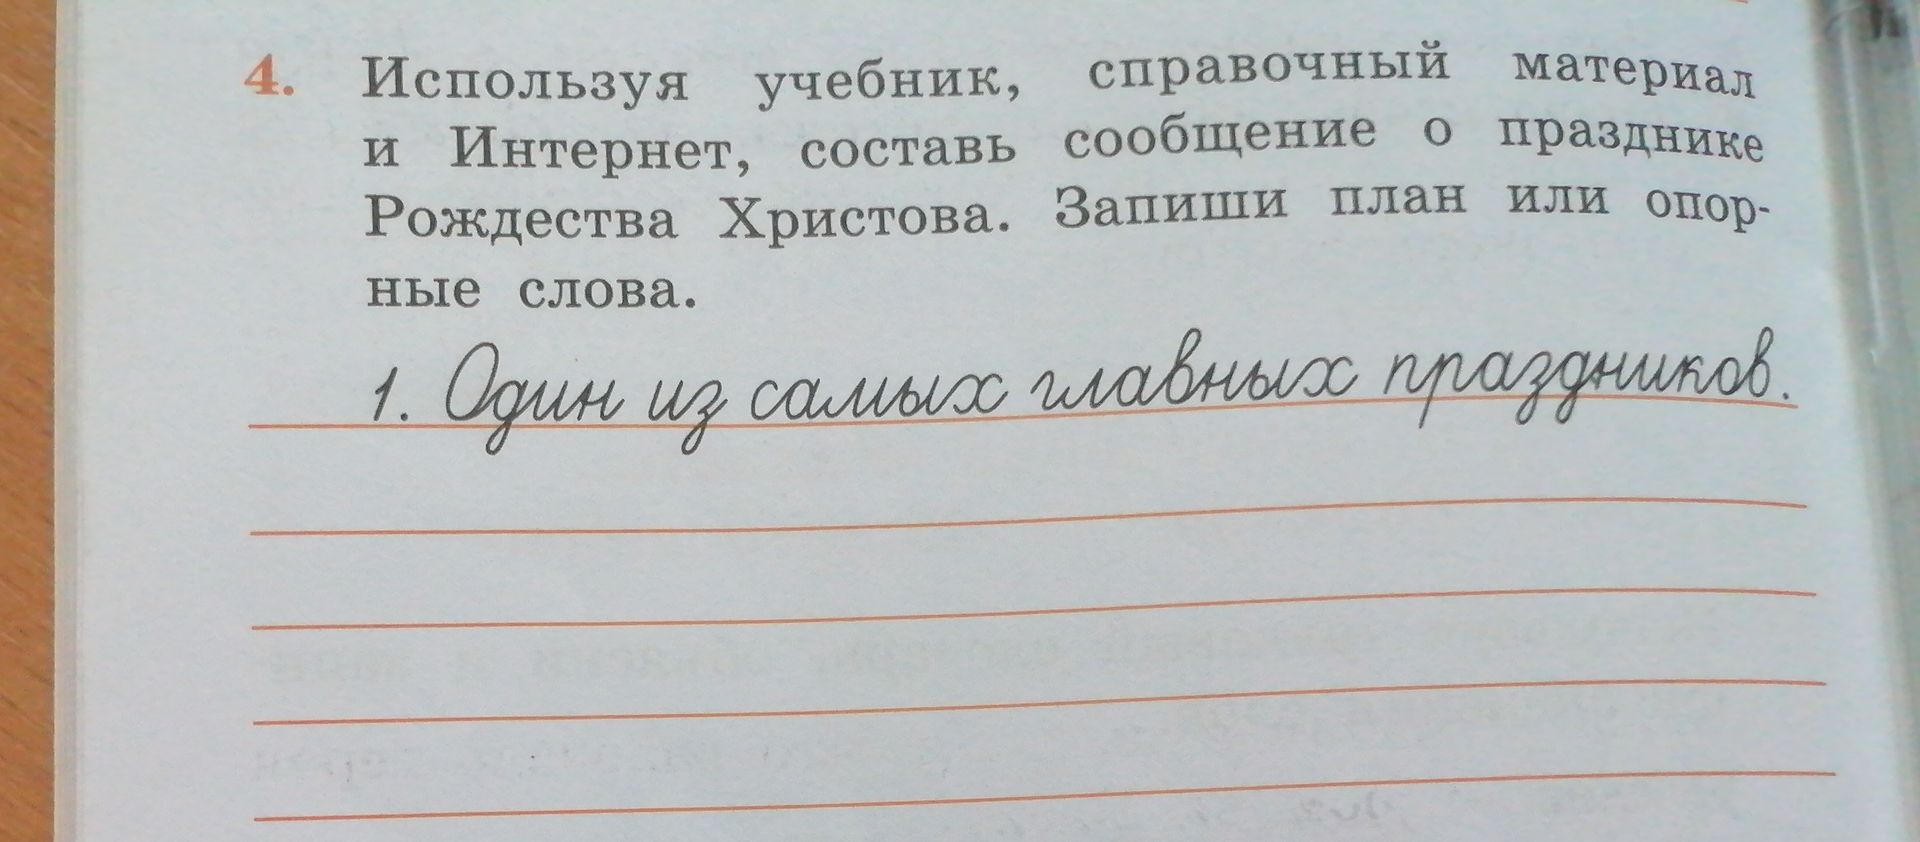 4. Используя учебник, справочный материал
и Интернет, составь сообщение о празднике
Рождества Христова. Запиши план или опор-
ные слова.
1. Один из самых главных праздников.